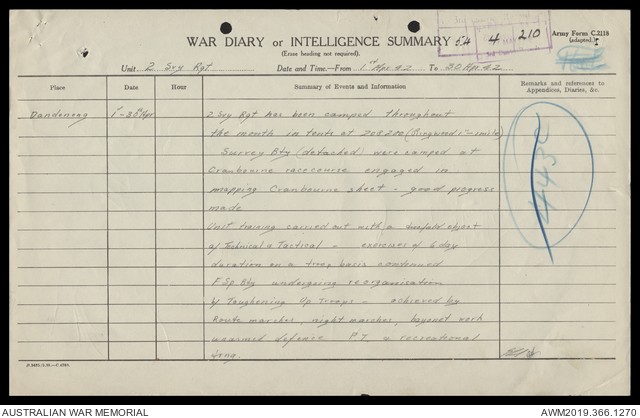 WAR DIARY or INTELLIGENCE SUMMARY
(Erase heading not required).
54 4 210
Army Form C.2118
(adapted).
Unit 2 Svy Rgt Date and Time—From 1st Apr 42 To 30 Apr 42
Place Date Hour Summary of Events and Information Remarks and references to Appendices, Diaries, &c.
Dandenong 1st-30th Apr 2 Svy Rgt has been camped throughout
the month in tents at 208200 (Ringwood 1"-1mile)
Survey Bty (detached) were camped at
Cranbourne racecourse engaged in
mapping Cranbourne sheet - good progress
made
Unit training carried out with a twofold object
a/ Technical & Tactical - exercises of 6 day
duration on a troop basis continued
F Sp Bty undergoing reorganisation
b/ Toughening Up Troops - achieved by
Route marches, night marches, bayonet work
unarmed defence P.T. & recreational
trng.
AUSTRALIAN WAR MEMORIAL
AWM2019.366.1270